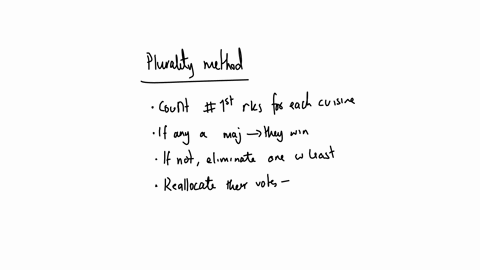 Plurality method
• Count # 1st rks for each cuisine
• If any a maj → they win
• If not, eliminate one w least
• Reallocate their votes –